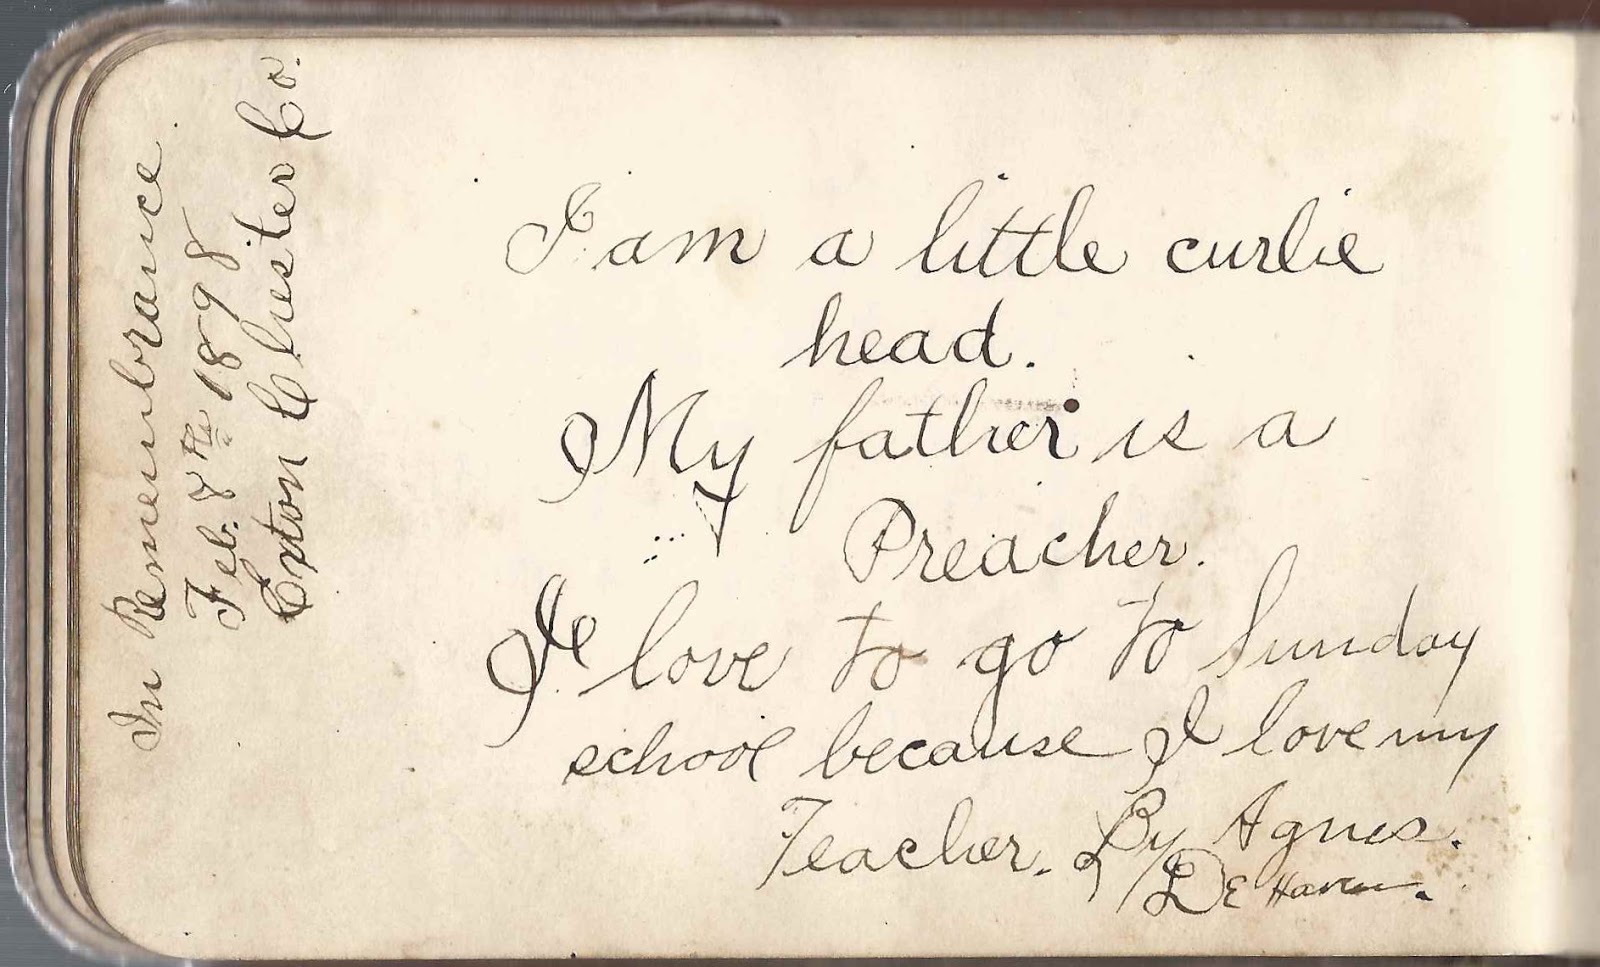 In Remembrance
Feb. 8th 1898
Exton Chester Co.
I am a little curlie
head.
My father is a
Preacher.
I love to go to Sunday
school because I love my
Teacher. By Agnes.
DE Haven.